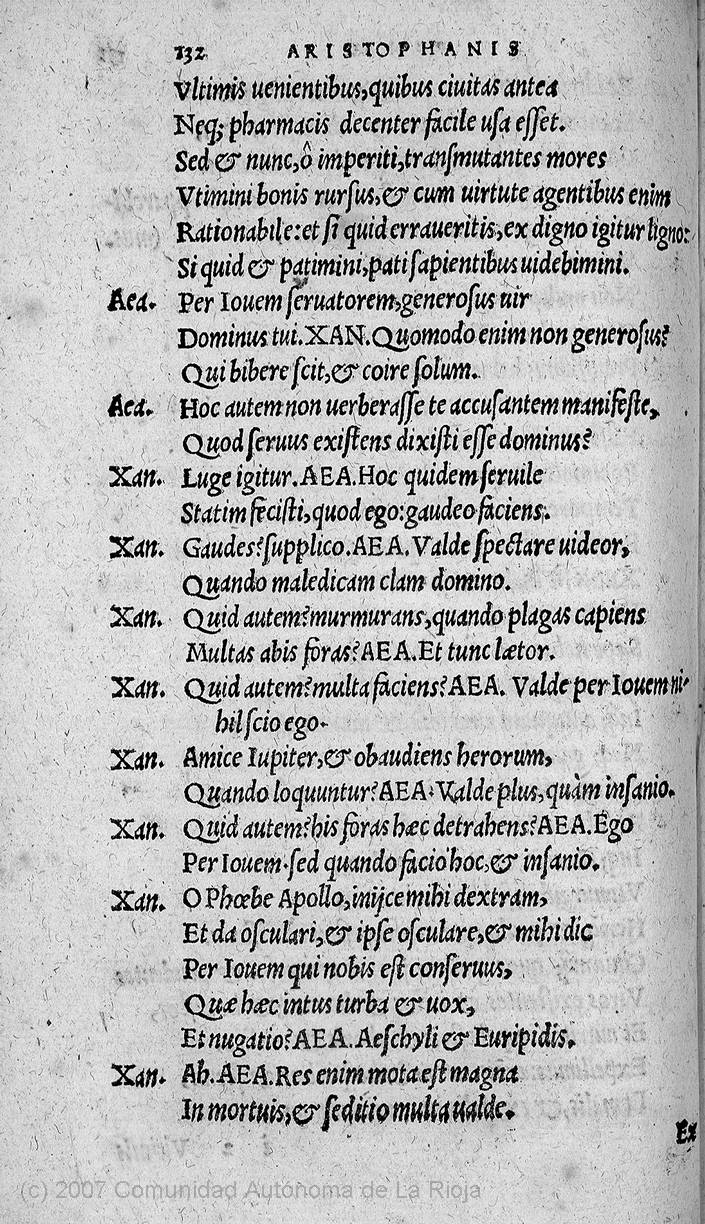 132 ARISTOPHANIS
Vltimis uenientibus, quibus ciuitas antea
Neq; pharmacis decenter facile usa esset.
Sed & nunc, ô imperiti, transmutantes mores
Vtimini bonis rursus, & cum uirtute agentibus enim
Rationabile: et si quid erraueritis, ex digno igitur ligno:
Si quid & patimini, pati sapientibus uidebimini.
Aea. Per Iouem seruatorem, generosus uir
Dominus tui. XAN. Quomodo enim non generosus?
Qui bibere scit, & coire solum.
Aea. Hoc autem non uerberasse te accusantem manifeste,
Quod seruus existens dixisti esse dominus?
Xan. Luge igitur. AEA. Hoc quidem seruile
Statim fecisti, quod ego: gaudeo faciens.
Xan. Gaudes? supplico. AEA. Valde spectare uideor,
Quando maledicam clam domino.
Xan. Quid autem? murmurans, quando plagas capiens
Multas abis foras? AEA. Et tunc lætor.
Xan. Quid autem? multa faciens? AEA. Valde per Iouem ni-
hil scio ego.
Xan. Amice Iupiter, & obaudiens herorum,
Quando loquuntur? AEA. Valde plus, quàm insanio.
Xan. Quid autem? his foras hæc detrahens? AEA. Ego
Per Iouem. sed quando facio hoc, & insanio.
Xan. O Phœbe Apollo, inijce mihi dextram,
Et da osculari, & ipse osculare, & mihi dic
Per Iouem qui nobis est conseruus,
Quæ hæc intus turba & uox,
Et nugatio? AEA. Aeschyli & Euripidis.
Xan. Ah. AEA. Res enim mota est magna
In mortuis, & seditio multa ualde.
Ex
(c) 2007 Comunidad Autónoma de La Rioja